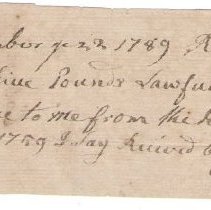 ber ye 22 1789 R
five Pounds Lawfu
e to me from the
1759 I Say Recived